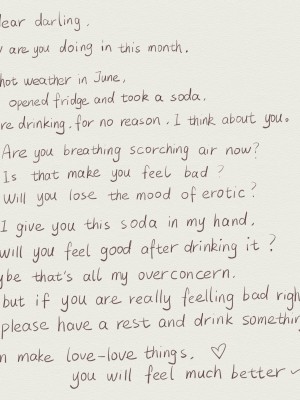 ear darling,
are you doing in this month.
hot weather in June,
opened fridge and took a soda.
re drinking. for no reason. I think about you.
Are you breathing scorching air now?
Is that make you feel bad?
Will you lose the mood of erotic?
I give you this soda in my hand.
will you feel good after drinking it?
ybe that's all my overconcern.
but if you are really feelling bad righ
please have a rest and drink somethin
n make love-love things. ♡
you will feel much better ~